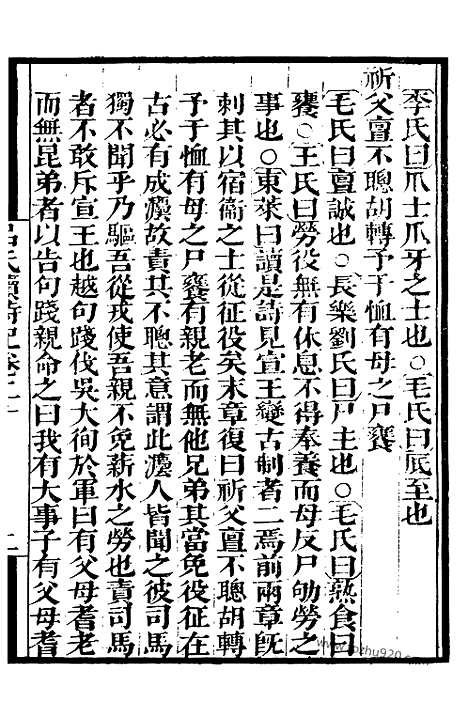 李氏曰爪士爪牙之士也○毛氏曰底至也
祈父亶不聰胡轉予于恤有母之尸饔
毛氏曰亶誠也○長樂劉氏曰尸主也○毛氏曰熟食曰
饔○王氏曰勞役無有休息不得奉養而母反尸劬勞之
事也○東萊曰讀是詩見宣王變古制者二焉前兩章旣
刺其以宿衞之士從征役矣末章復曰祈父亶不聰胡轉
予于恤有母之尸饔有親老而無他兄弟其當免役征在
古必有成灋故責其不聰其意謂此灋人皆聞之彼司馬
獨不聞乎乃驅吾從戎使吾親不免薪水之勞也責司馬
者不敢斥宣王也越句踐伐吳大徇於軍曰有父母耆老
而無昆弟者以告句踐親命之曰我有大事子有父母耆
呂氏讀詩記卷二十
二
www.bozhu920.com